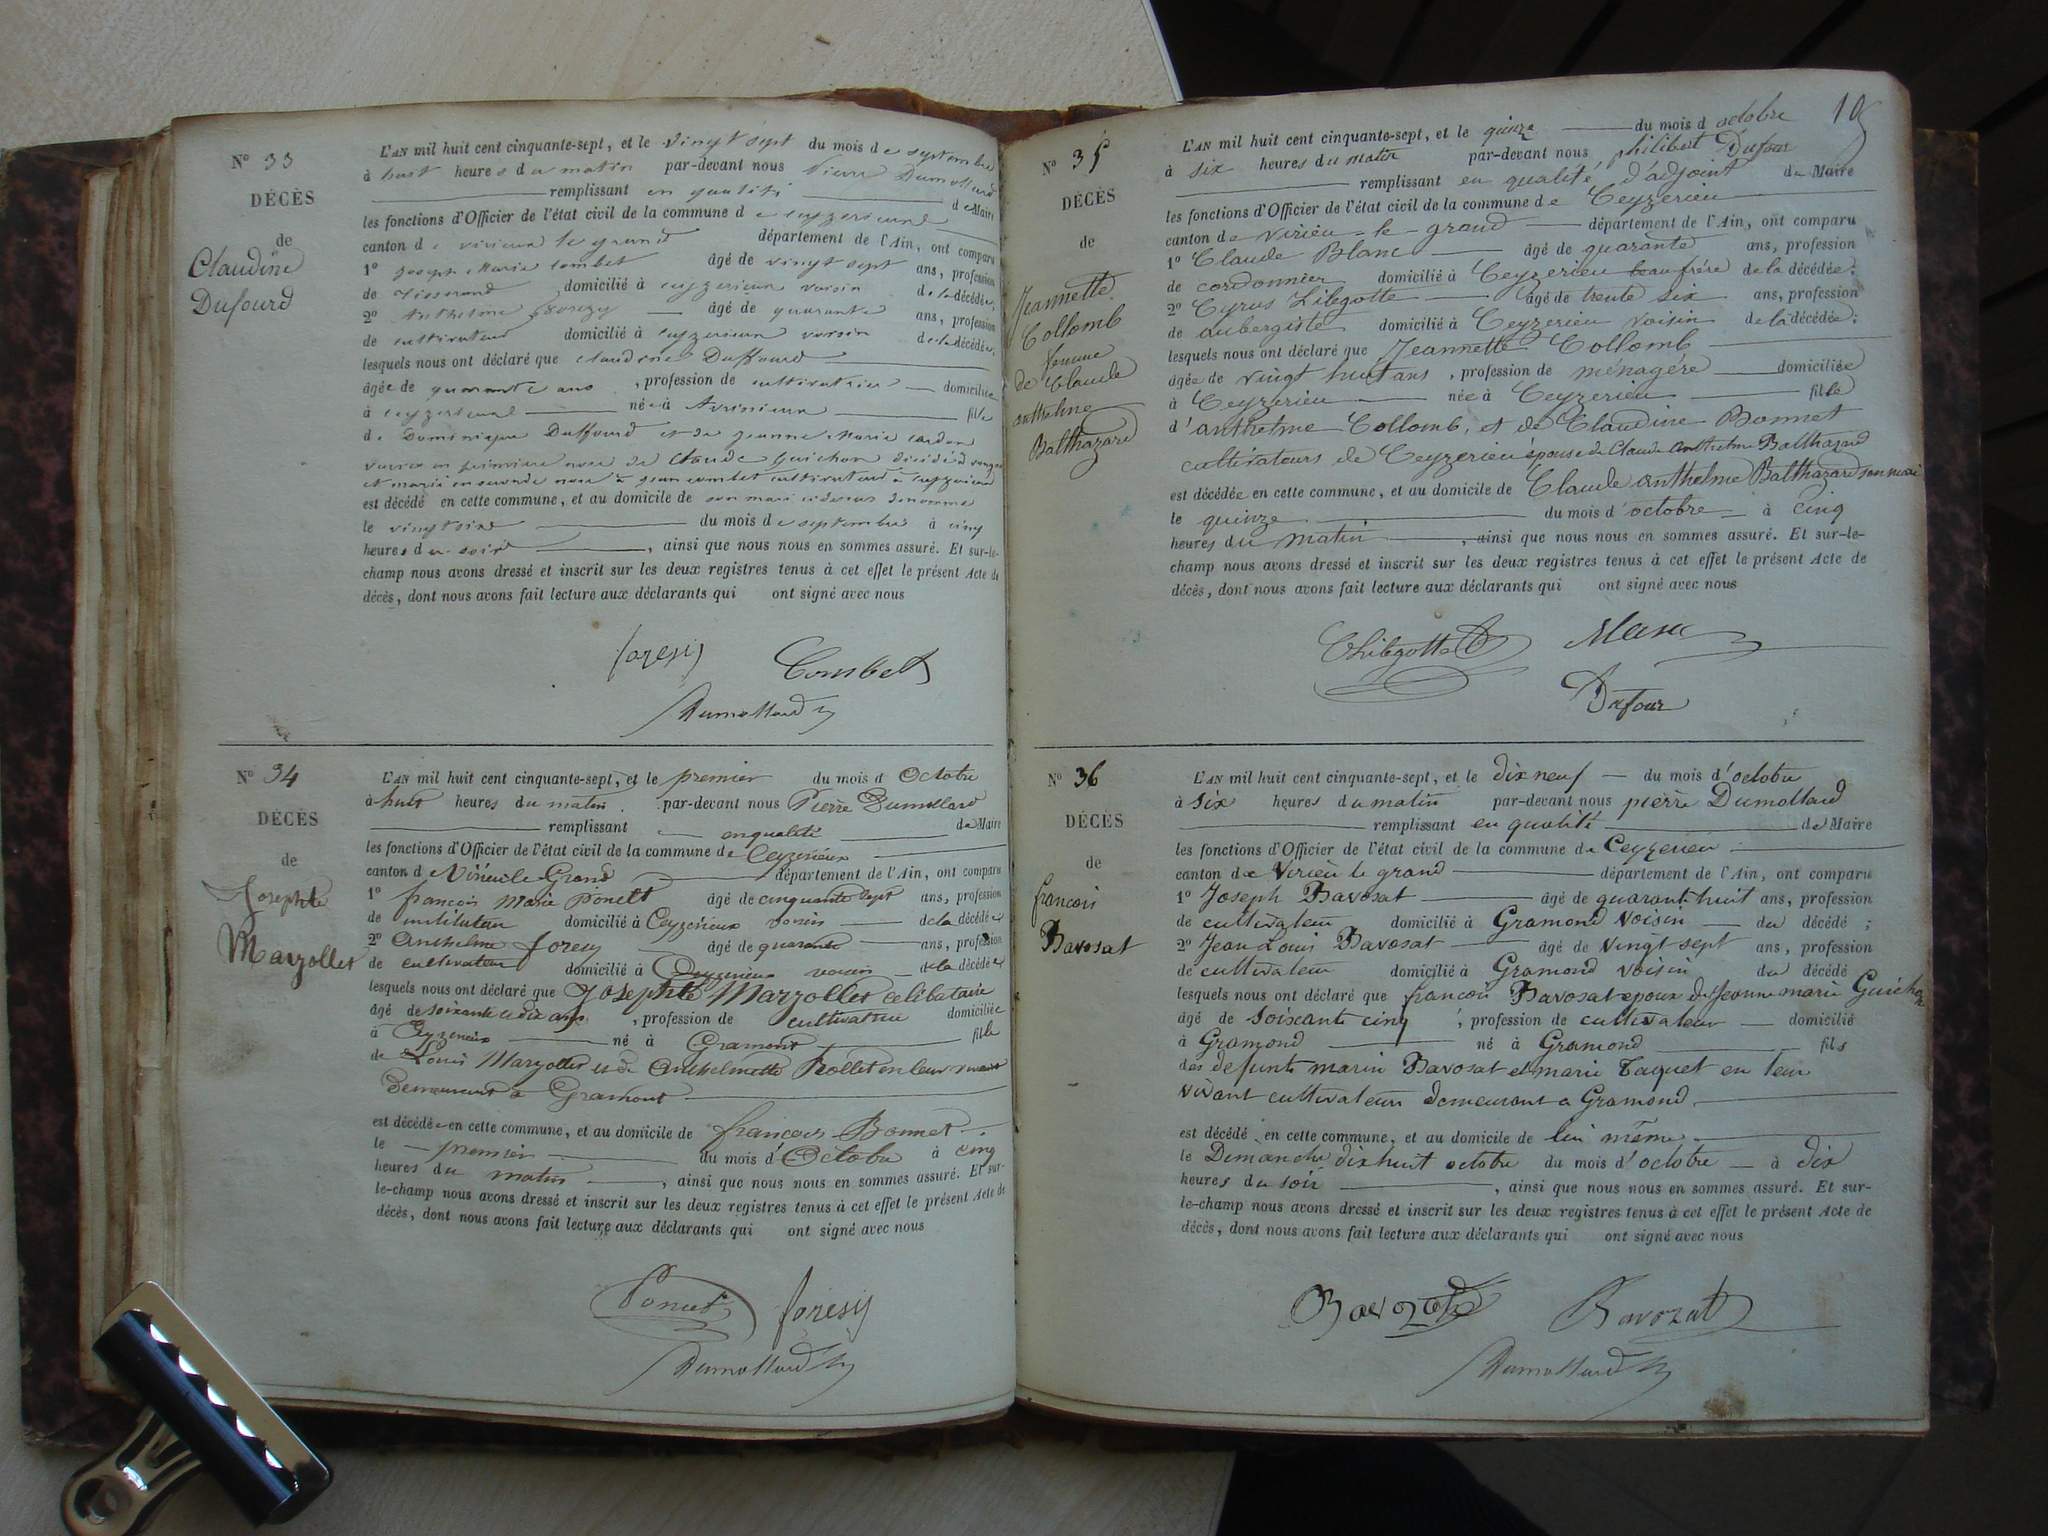 N° 33
DÉCÈS
de
Claudine
Dufourd
L'AN mil huit cent cinquante-sept, et le vingt sept du mois de septembre
à huit heures du matin par-devant nous Pierre Dumollard
remplissant en qualité de Maire
les fonctions d'Officier de l'état civil de la commune de ceyzerieux
canton de virieux le grand département de l'Ain, ont comparu
1° joseph Marie combet âgé de vingt sept ans, profession
de Tisserand domicilié à ceyzerieux voisin de la décédée;
2° Anthelme forezy âgé de quarante ans, profession
de cultivateur domicilié à ceyzerieux voisin de la décédée;
lesquels nous ont déclaré que claudine Duffourd
âgée de quarante ans, profession de cultivatrice domiciliée
à ceyzerieux née à Avrissieux fille
de Dominique Duffourd et de jeanne Marie cardon
veuve en premiere noce de Claude Guichon décédé
et marié en seconde noce à jean combet cultivateur à ceyzerieux
est décédé en cette commune, et au domicile de son mari ci dessus denommé
le vingt six du mois de septembre à cinq
heures du soir, ainsi que nous nous en sommes assuré. Et sur-le-
champ nous avons dressé et inscrit sur les deux registres tenus à cet effet le présent Acte de
décès, dont nous avons fait lecture aux déclarants qui ont signé avec nous
foresy Combet
Dumollard
N° 34
DÉCÈS
de
Josephte
Marzollet
L'AN mil huit cent cinquante-sept, et le premier du mois d Octobre
à huit heures du matin par-devant nous Pierre Dumollard
remplissant en qualité de Maire
les fonctions d'Officier de l'état civil de la commune de Ceyzerieux
canton de Virieu le Grand département de l'Ain, ont comparu
1° françois Marie Poncet âgé de cinquante sept ans, profession
de instituteur domicilié à Ceyzérieux voisin de la décédée
2° Anthelme foresy âgé de quarante ans, profession
de cultivateur domicilié à Ceyzerieux voisin de la décédée
lesquels nous ont déclaré que Josephte Marzollet célibataire
âgé de soixante et dix ans, profession de cultivatrice domiciliée
à Ceyzerieux né à Gramont fille
de Louis Marzollet et de Anthelmette Rollet en leur vivant
demeurant à Gramont
est décédée en cette commune, et au domicile de françois Bonnet
le premier du mois d'Octobre à cinq
heures du matin, ainsi que nous nous en sommes assuré. Et sur-
le-champ nous avons dressé et inscrit sur les deux registres tenus à cet effet le présent Acte de
décès, dont nous avons fait lecture aux déclarants qui ont signé avec nous
Poncet foresy
Dumollard
N° 35
DÉCÈS
de
Jeannette
Collomb
femme
de Claude
anthelme
Balthazard
L'AN mil huit cent cinquante-sept, et le quinze du mois d octobre
à six heures du matin par-devant nous philibert Dufour
remplissant en qualité d'adjoint du Maire
les fonctions d'Officier de l'état civil de la commune de Ceyzerieu
canton de virieu-le-grand département de l'Ain, ont comparu
1° Claude Blanc âgé de quarante ans, profession
de cordonnier domicilié à Ceyzerieu beau frére de la décédée;
2° Cyrus Libegotte âgé de trente six ans, profession
de aubergiste domicilié à Ceyzerieu voisin de la décédée;
lesquels nous ont déclaré que Jeannette Collomb
âgée de vingt huit ans, profession de ménagére domiciliée
à Ceyzerieu née à Ceyzerieu fille
d'anthelme Collomb, et de Claudine Bonnet
cultivateurs de Ceyzerieu épouse de Claude Anthelme Balthazard
est décédée en cette commune, et au domicile de Claude anthelme Balthazard son mari
le quinze du mois d'octobre à cinq
heures du matin, ainsi que nous nous en sommes assuré. Et sur-le-
champ nous avons dressé et inscrit sur les deux registres tenus à cet effet le présent Acte de
décès, dont nous avons fait lecture aux déclarants qui ont signé avec nous
Dufour
N° 36
DÉCÈS
de
françois
Bavosat
L'AN mil huit cent cinquante-sept, et le dix neuf du mois d'octobre
à six heures du matin par-devant nous pierre Dumollard
remplissant en qualité de Maire
les fonctions d'Officier de l'état civil de la commune de Ceyzerieu
canton de Virieu le grand département de l'Ain, ont comparu
1° Joseph Bavosat âgé de quarant huit ans, profession
de cultivateur domicilié à Gramond voisin du décédé;
2° Jean Louis Bavosat âgé de vingt sept ans, profession
de cultivateur domicilié à Gramond voisin du décédé
lesquels nous ont déclaré que francois Bavosat epoux de Jeanne marie Guichon
âgé de soixante cinq, profession de cultivateur domicilié
à Gramond né à Gramond fils
des defunts marin Bavosat et marie Taquet en leur
vivant cultivateur demeurant a Gramond
est décédé en cette commune, et au domicile de lui même
le Dimanche dix huit octobre du mois d'octobre à dix
heures du soir, ainsi que nous nous en sommes assuré. Et sur-
le-champ nous avons dressé et inscrit sur les deux registres tenus à cet effet le présent Acte de
décès, dont nous avons fait lecture aux déclarants qui ont signé avec nous
Bavozat Bavozat
Dumollard